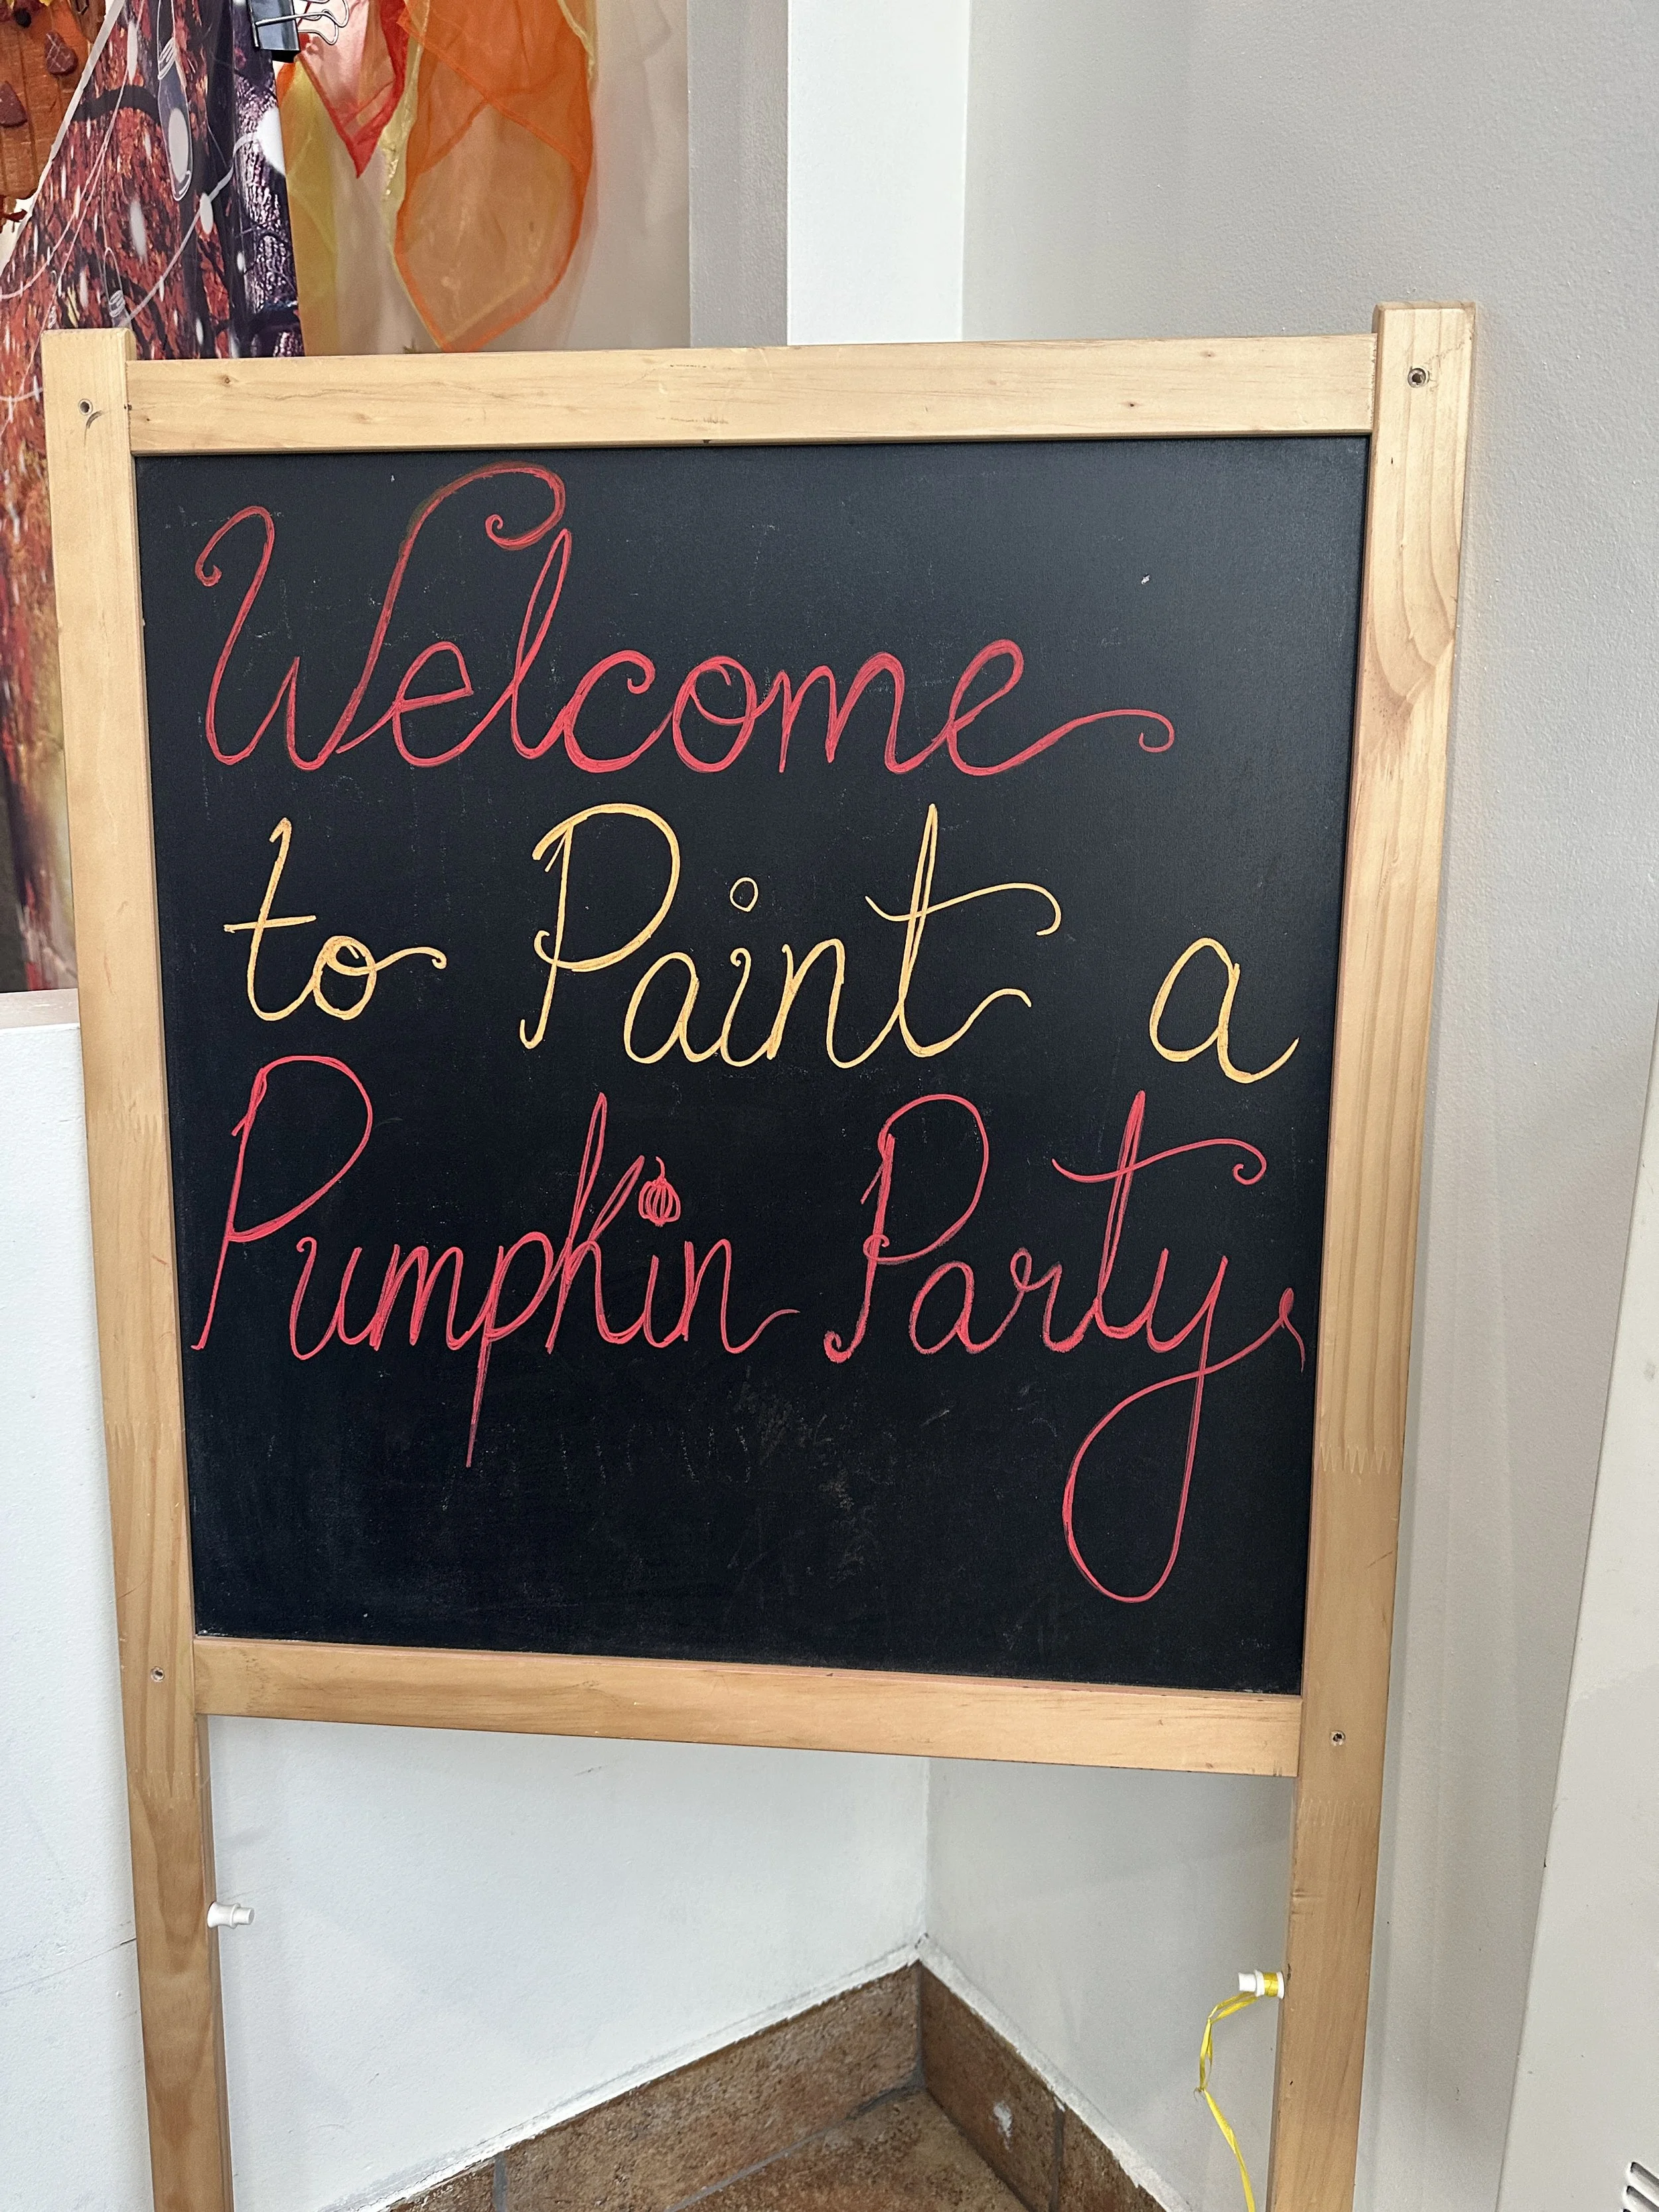 Welcome
to Paint a
Pumpkin Party